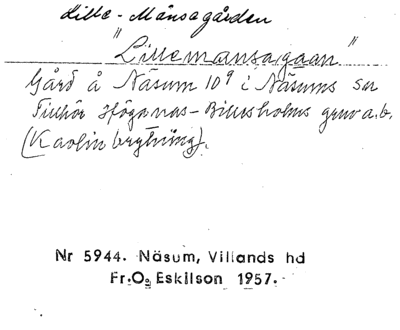 Lille-Månsagården
"Lillemansagaan"
Gård å Näsum 10⁹ i Näsums sn
Tillhör Höganäs-Billesholms gruv a.b.
(Kaolinbrytning).
Nr 5944. Näsum, Villands hd
Fr.O. Eskilson 1957.